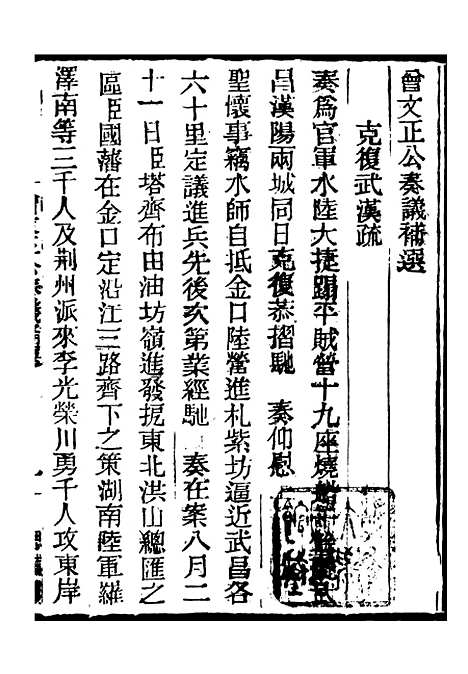 曾文正公奏議補選
克復武漢疏
奏爲官軍水陸大捷蹋平賊營十九座燒
昌漢陽兩城同日克復恭摺馳　奏仰慰
聖懷事竊水師自抵金口陸營進札紫坊逼近武昌各
六十里定議進兵先後次第業經馳　奏在案八月二
十一日臣塔齊布由油坊嶺進發扼東北洪山總匯之
區臣國藩在金口定沿江三路齊下之策湖南陸軍羅
澤南等三千人及荆州派來李光榮川勇千人攻東岸